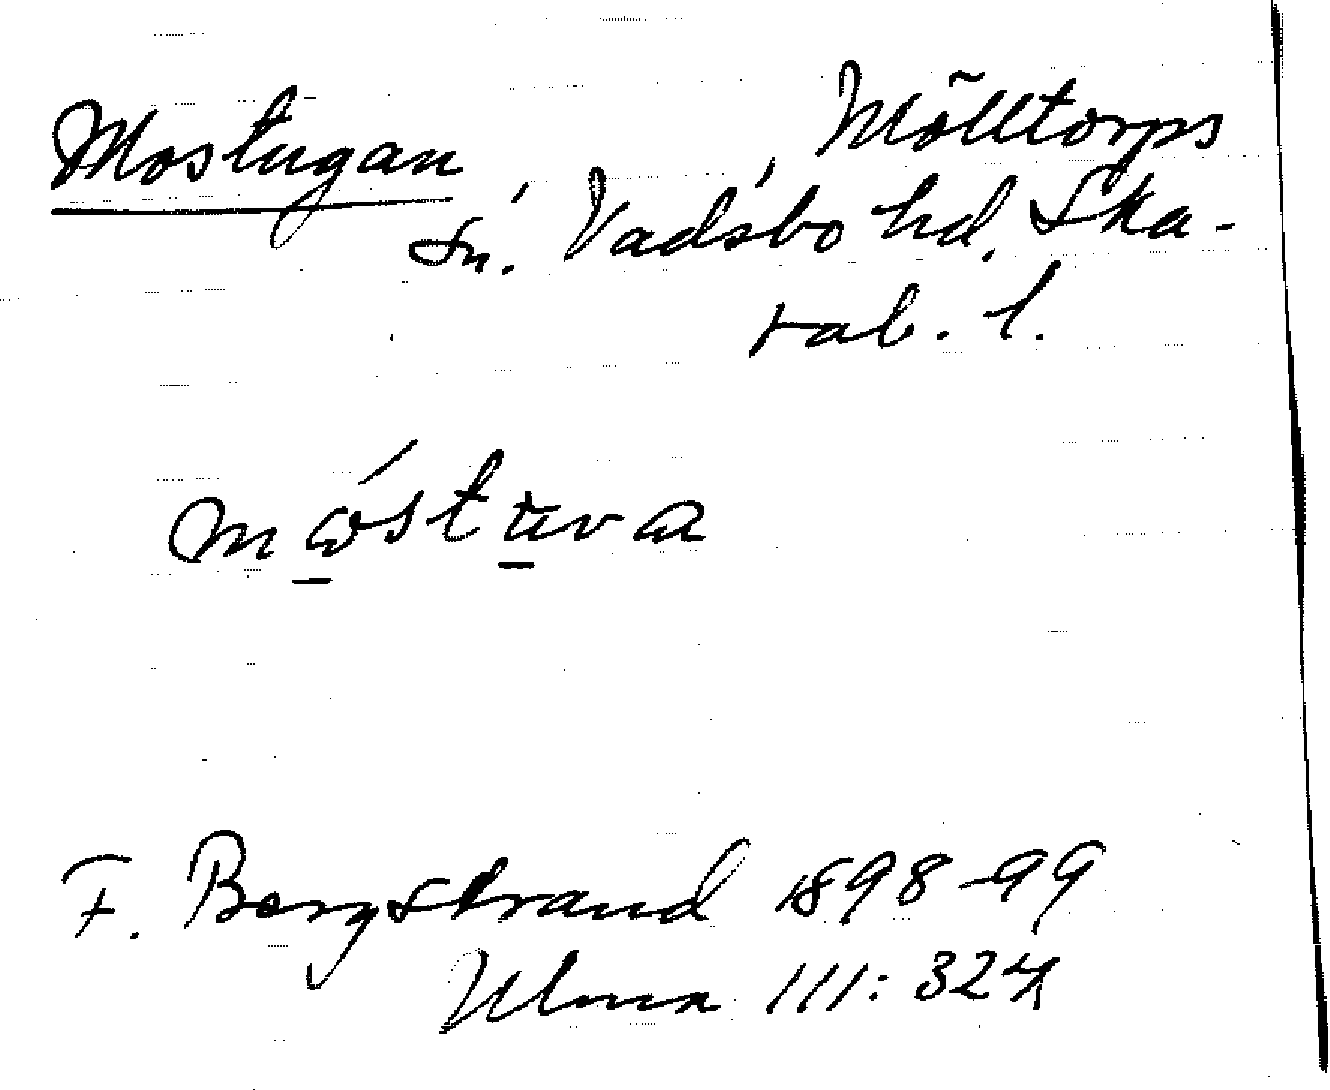 Mostugan
Mölltorps
sn. Vadsbo hd. Ska-
rab. l.
F. Bergstrand 1898-99
Ulma 111:324